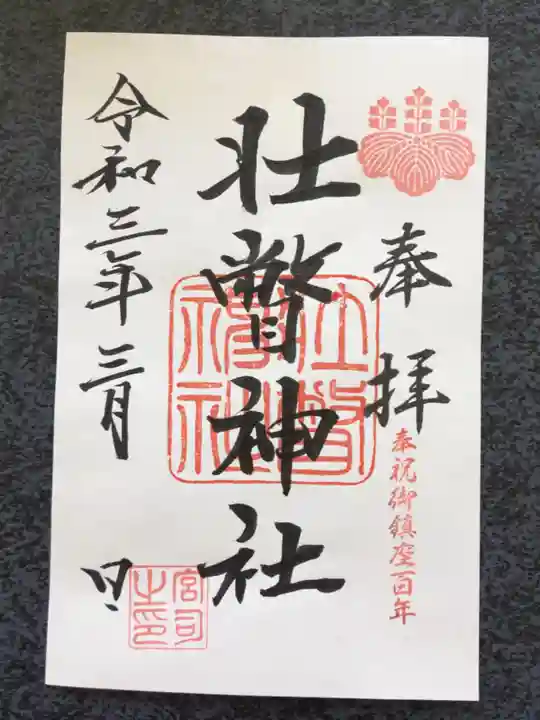 奉拝
奉祝御鎮座百年
壮瞥神社
壮瞥
神社
令和三年三月 日
宮司
之印